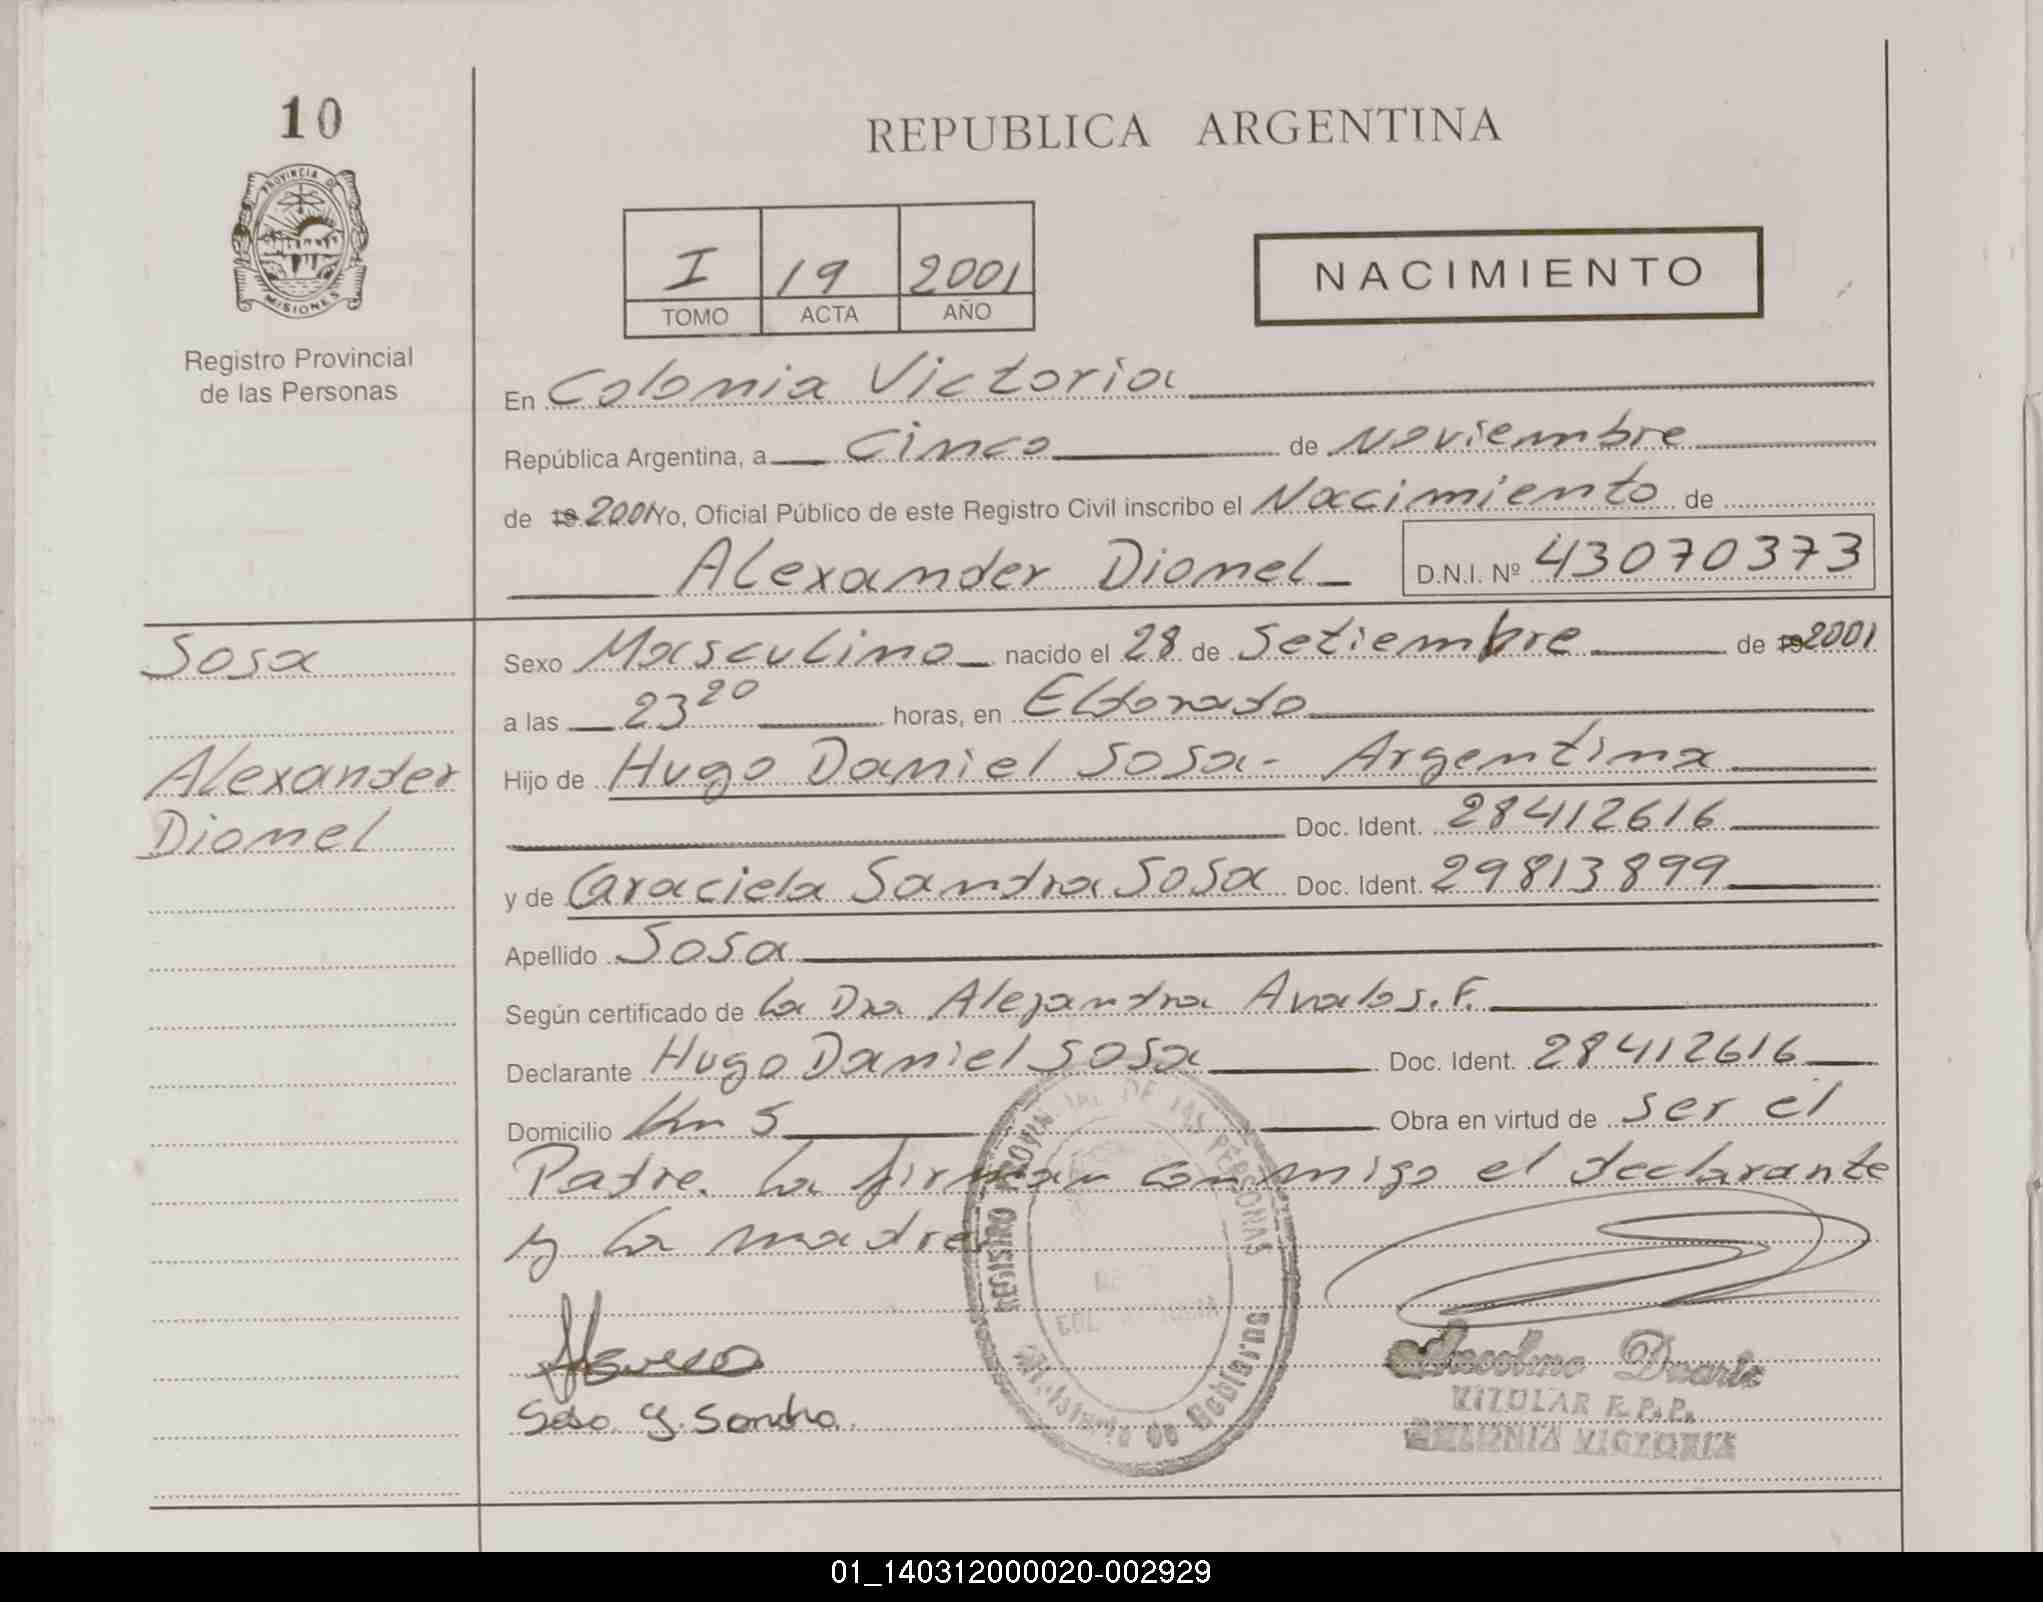 10
PROVINCIA DE
MISIONES
Registro Provincial
de las Personas
REPUBLICA ARGENTINA
I 19 2001
TOMO ACTA AÑO
NACIMIENTO
En Colonia Victoria
República Argentina, a Cinco de Noviembre
de 19 2001 Yo, Oficial Público de este Registro Civil inscribo el Nacimiento de
Alexander Dionel D.N.I. Nº 43070373
Sosa
Alexander
Dionel
Sexo Masculino nacido el 28 de Setiembre de 19 2001
a las 23 20 horas, en Eldorado
Hijo de Hugo Daniel Sosa - Argentina
Doc. Ident. 28412616
y de Graciela Sandra Sosa Doc. Ident. 29813899
Apellido Sosa
Según certificado de la Dra Alejandra Avalos. F.
Declarante Hugo Daniel Sosa Doc. Ident. 28412616
Domicilio Km 5 Obra en virtud de ser el
Padre. La firman conmigo el declarante
y la madre
REGISTRO PROVINCIAL DE LAS PERSONAS
Ministerio de Gobierno
Sosa G. Sandra.
Duarte
TITULAR R.P.P.
COLONIA VICTORIA
01_140312000020-002929